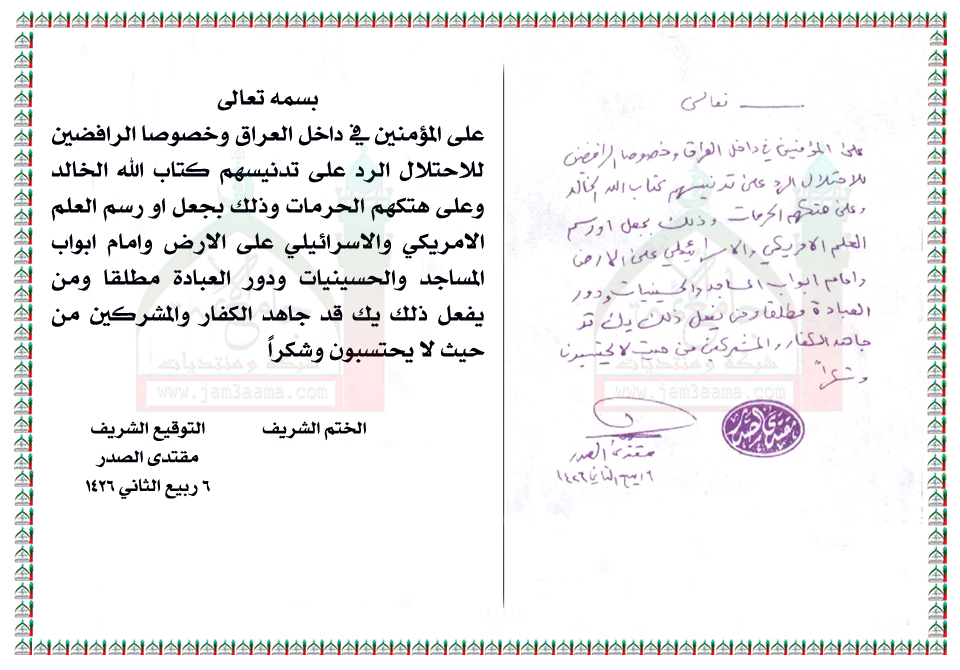 بسمه تعالى
على المؤمنين في داخل العراق وخصوصا الرافضين
للاحتلال الرد على تدنيسهم كتاب الله الخالد
وعلى هتكهم الحرمات وذلك بجعل او رسم العلم
الامريكي والاسرائيلي على الارض وامام ابواب
المساجد والحسينيات ودور العبادة مطلقا ومن
يفعل ذلك يك قد جاهد الكفار والمشركين من
حيث لا يحتسبون وشكراً
الختم الشريف
التوقيع الشريف
مقتدى الصدر
٦ ربيع الثاني ١٤٢٦
شبكة ومنتديات
www.jam3aama.com
تعالى
على المؤمنين في داخل العراق وخصوصا الرافضين
للاحتلال الرد على تدنيسهم كتاب الله الخالد
وعلى هتكهم الحرمات وذلك بجعل او رسم
العلم الامريكي والاسرائيلي على الارض
وامام ابواب المساجد والحسينيات ودور
العبادة مطلقا ومن يفعل ذلك يك قد
جاهد الكفار والمشركين من حيث لا يحتسبون
وشكراً
مقتدى الصدر
مقتدى الصدر
٦ ربيع الثاني ١٤٢٦
شبكة ومنتديات
www.jam3aama.com